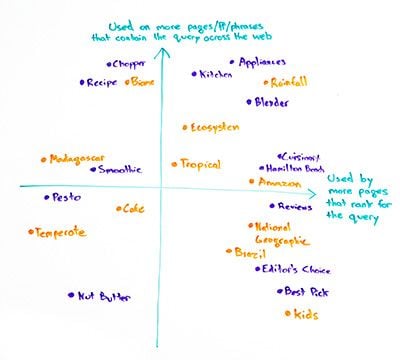 Used on more pages/¶/phrases
that contain the query across the web
Chopper
Appliances
Kitchen
Recipe
Biome
Rainfall
Blender
Ecosystem
Madagascar
Smoothie
Tropical
Cuisinart/
Hamilton Beach
Amazon
Used by
more pages
that rank for
the query
Pesto
Cake
Reviews
Temperate
National
Geographic
Brazil
Editor's Choice
Nut Butter
Best Pick
Kids